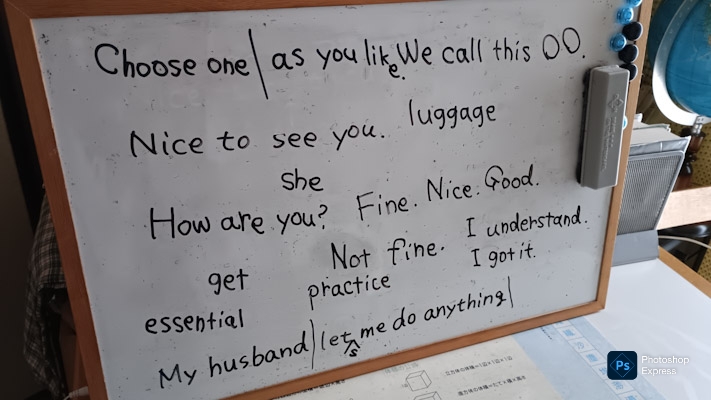 Choose one| as you like. We call this OO.
Nice to see you. luggage
she
How are you? Fine. Nice. Good.
Not fine. I understand.
get practice I got it.
essential
My husband| lets me do anything|
Photoshop
Express
Ps